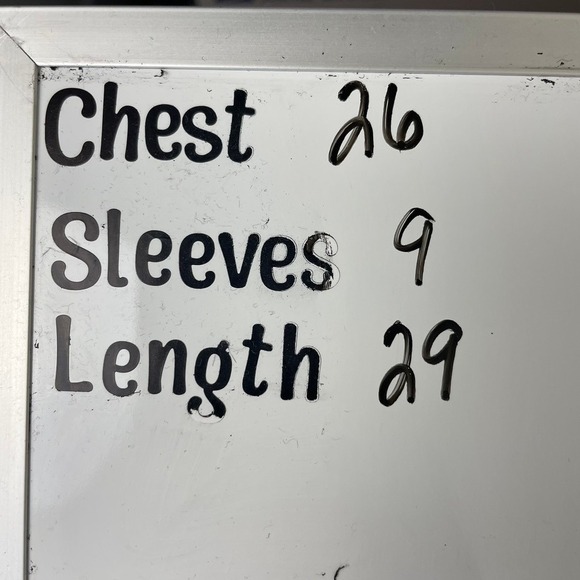 Chest 26
Sleeves 9
Length 29